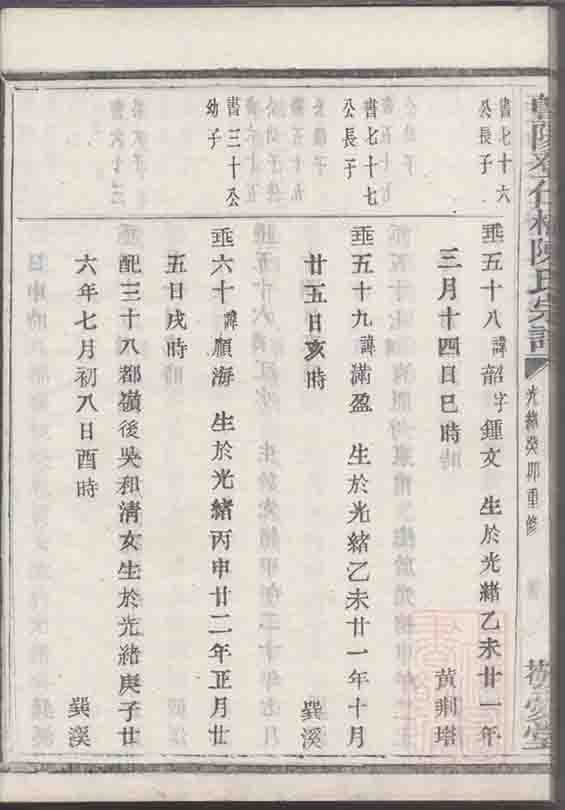 陳氏宗譜
光緒癸卯重修
書七十六
公長子
垂五十八諱韶字鍾文 生於光緒乙未廿一年
三月十四日巳時 黃荊塔
書七十七
公長子
垂五十九諱滿盈 生於光緒乙未廿一年十月
廿五日亥時 巽溪
書三十公
幼子
垂六十諱願海 生於光緒丙申廿二年正月廿
五日戌時
配三十八都嶺後吳和清女生於光緒庚子廿
六年七月初八日酉時 巽溪